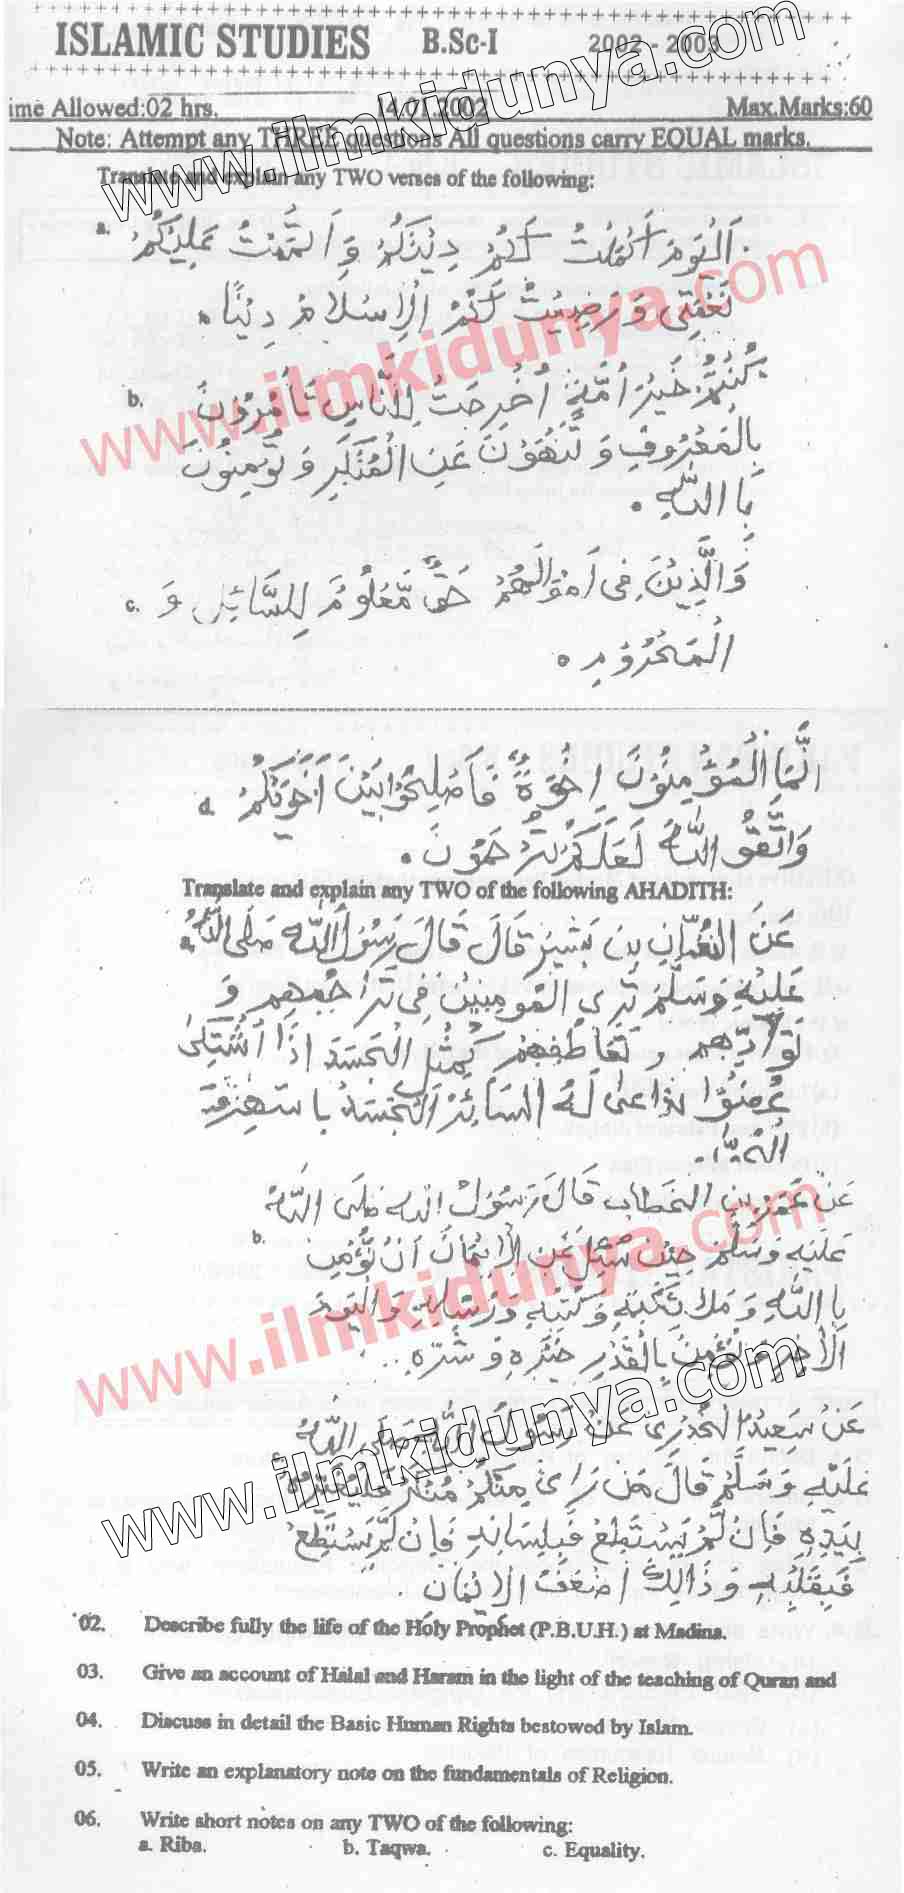 ISLAMIC STUDIES B.Sc-I 2002 - 2003
ime Allowed:02 hrs. 14.07.2002 Max.Marks:60
Note: Attempt any THREE questions All questions carry EQUAL marks.
Translate and explain any TWO verses of the following:
a. اَلْيَوْمَ اَكْمَلْتُ لَكُمْ دِيْنَكُمْ وَ اَتْمَمْتُ عَلَيْكُمْ
نِعْمَتِى وَ رَضِيْتُ لَكُمُ الْاِسْلَامَ دِيْنًا۔
b. كُنْتُمْ خَيْرَ اُمَّةٍ اُخْرِجَتْ لِلنَّاسِ تَأْمُرُوْنَ
بِالْمَعْرُوْفِ وَ تَنْهَوْنَ عَنِ الْمُنْكَرِ وَ تُؤْمِنُوْنَ
بِا اللّٰهِ۔
وَالَّذِيْنَ فِى اَمْوَالِهِمْ حَقٌّ مَّعْلُوْمٌ لِلسَّائِلِ وَ
c. الْمَحْرُوْمِ۔
اِنَّمَا الْمُؤْمِنُوْنَ اِخْوَةٌ فَاَصْلِحُوْا بَيْنَ اَخَوَيْكُمْ
d. وَاتَّقُو اللّٰهَ لَعَلَّكُمْ تُرْحَمُوْنَ۔
Translate and explain any TWO of the following AHADITH:
a. عَنِ النُّعْمَانِ بِن بَشِيْرٍ قَالَ قَالَ رَسُوْلُ اللّٰهِ صَلَّى اللّٰهُ
عَلَيْهِ وَسَلَّمَ تَرَى الْمُومِنِيْنَ فِى تَرَاحُمِهِم وَ
تَوَادِّهِم تَعَاطُفِهِمْ كَمِثْلِ الْجَسَدِ اِذَا اشْتَكٰى
عُضْوًا تَدَاعٰى لَهُ السَائِرُ الْجَسَدُ با سَهَرِ
الحُمّٰى۔
عَنْ عُمَرَ بِنِ الخَطَابِ قَالَ رَسُوْلُ اللہ صَلَى اللّٰهُ
b. عَلَيهِ وَسَلَّمْ حِيْنَ سُئِلَ عَنِ الْاِيْمَانِ اَنْ تُؤْمِنَ
بِا اللّٰهِ وَ مَلٰئِكَتِهِ وَ كُتُبِهِ وَ رُسُلِهِ وَالْيَوْمِ
الْآخِرِ وَ تُؤْمِنَ بِالْقَدْرِ خَيْرِهِ وَ شَرِّهِ۔
عَنْ سَعِيْدُ الْخُدْرِى عَنْ رَسُوْلِ اللّٰهِ صَلَى اللّٰهُ
c. عَلَيْهِ وَسَلَّمْ قَالَ مَن رَاٰى مِنْكُمْ مُنْكَرً فَلْيُغَيِّرْهُ
بِيَدِهِ فَاِنْ لَّمْ يَسْتَطِعْ فَبِلِسَانِهِ فَاِنْ لَّمْ يَسْتَطِعْ
فَبِقَلْبِهِ وَ ذَالِكَ اَضْعَفُ الْاِيْمَانِ۔
02. Describe fully the life of the Holy Prophet (P.B.U.H.) at Madina.
03. Give an account of Halal and Haram in the light of the teaching of Quran and
04. Discuss in detail the Basic Human Rights bestowed by Islam.
05. Write an explanatory note on the fundamentals of Religion.
06. Write short notes on any TWO of the following:
a. Riba. b. Taqwa. c. Equality.
www.ilmkidunya.com
www.ilmkidunya.com
www.ilmkidunya.com
www.ilmkidunya.com